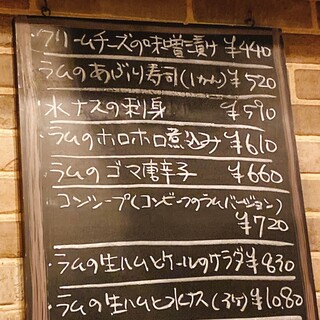 ・クリームチーズの味噌漬け ¥440
ラムのあぶり寿司(1かん) ¥520
水ナスの刺身 ¥590
・ラムのホロホロ煮込み ¥610
・ラムのゴマ唐辛子 ¥660
・コンシープ(コンビーフのラムバージョン)
¥720
・ラムの生ハムとケールのサラダ ¥830
・ラムの生ハムと水ナス ¥1080